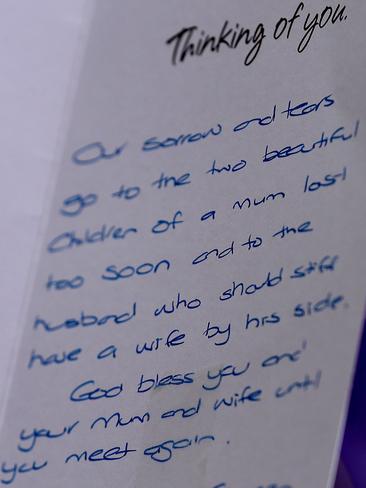 Thinking of you.
Our sorrow and tears
go to the two beautiful
Children of a mum lost
too soon and to the
husband who should still
have a wife by his side.
God bless you and
your Mum and wife until
you meet again.